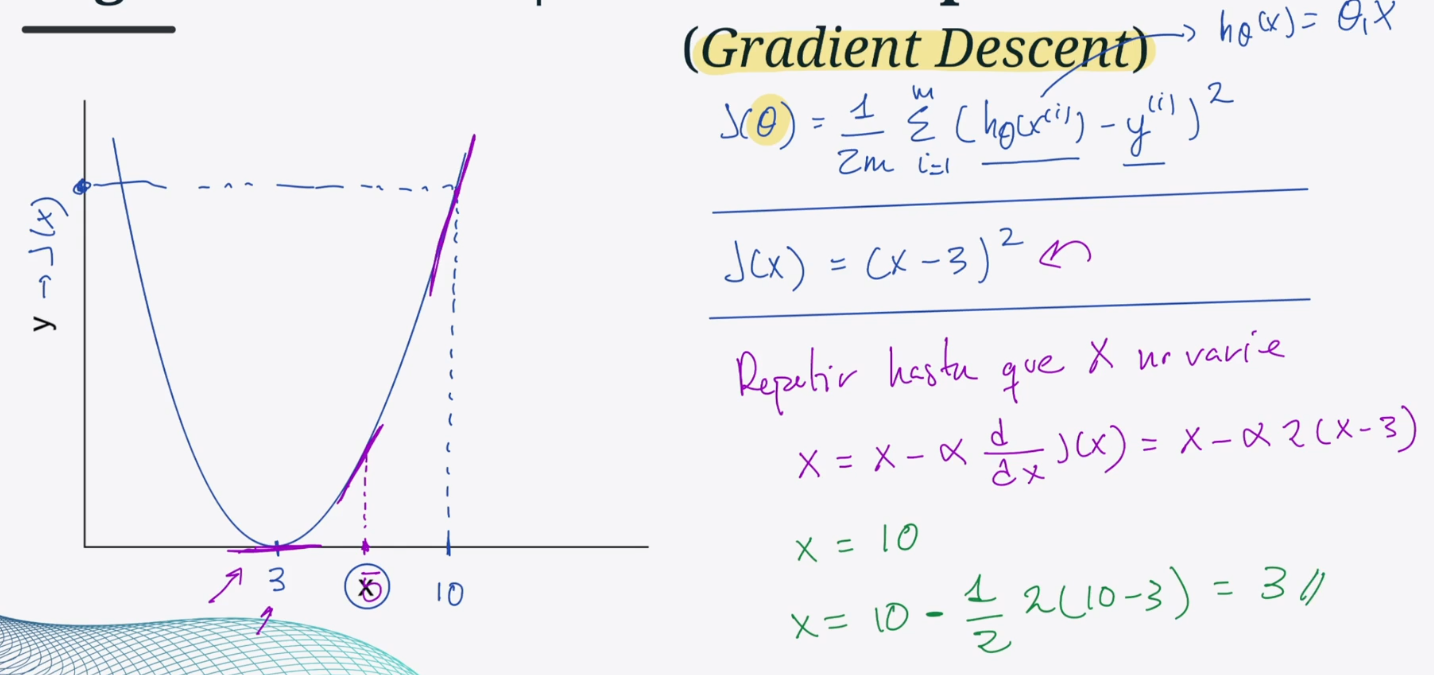 (Gradient Descent) → hθ(x) = θ₁X
J(θ) = 1/2m Σ i=1 m (hθ(x⁽ⁱ⁾) - y⁽ⁱ⁾)²
J(x) = (x-3)²
Repetir hasta que X no varie
x = x - α d/dx J(x) = x - α 2(x-3)
x = 10
x = 10 - 1/2 2(10-3) = 3 //
y → J(x)
3 x 10